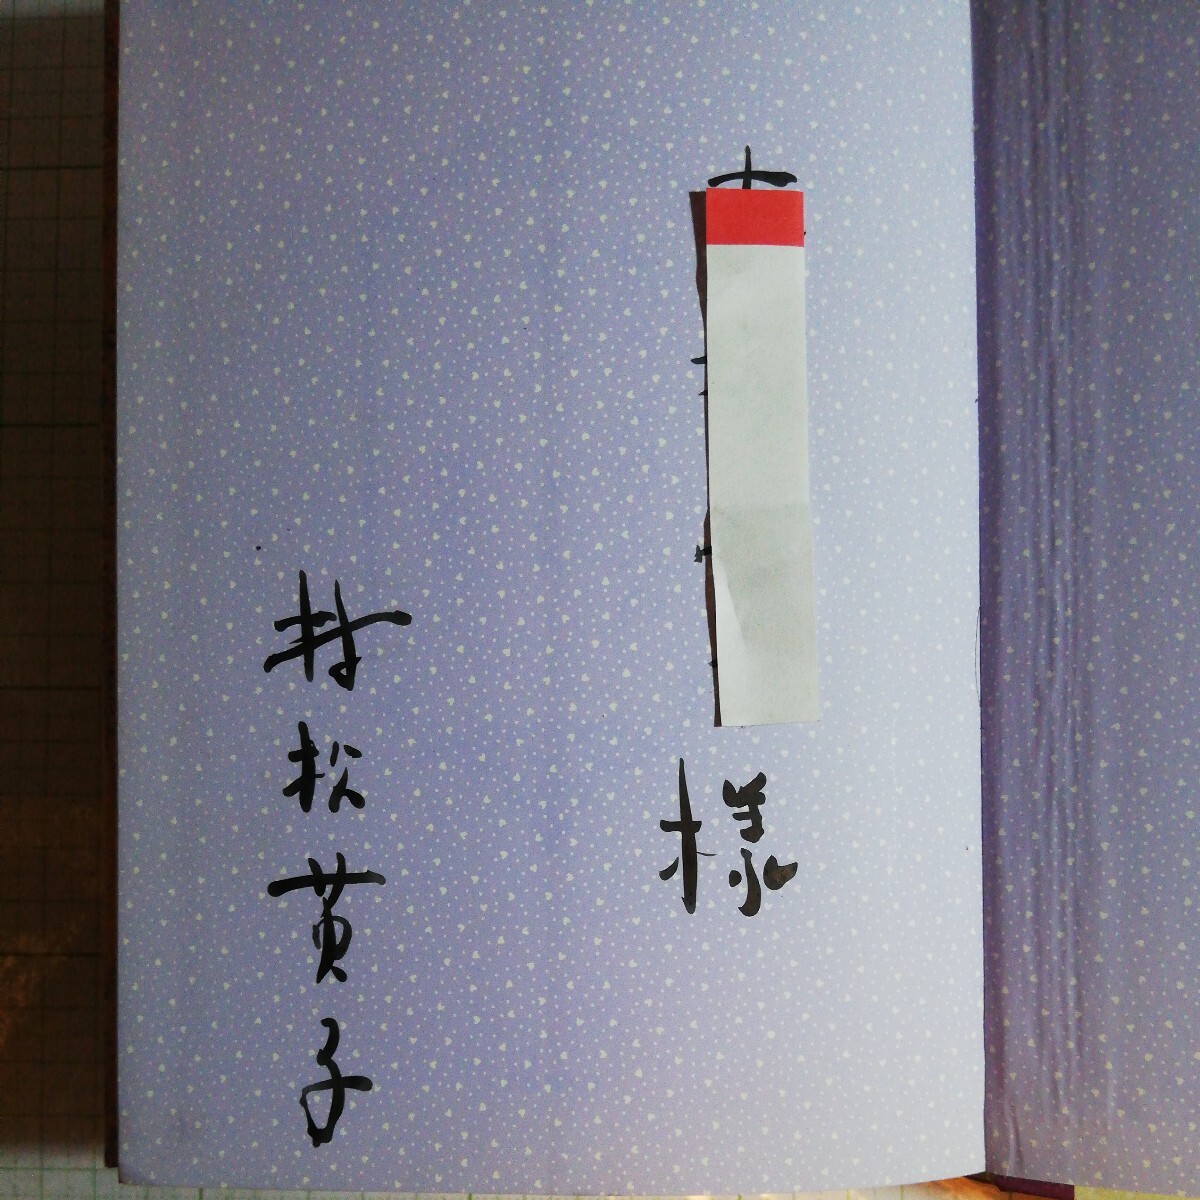 様
村松英子